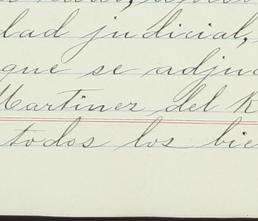 dad judicial,
que se adju
Martinez del R
todos los bie